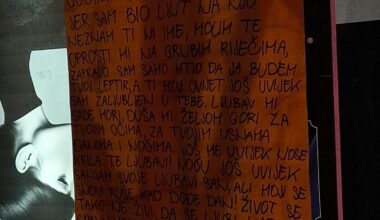 JER SAM BIO LJUT NA NJU
NEZNAM TI NI IME, MOLIM TE
OPROSTI MI NA GRUBIM RIJEČIMA,
ZAPRAVO SAM SAMO HTIO DA JA BUDEM
TVOJ LEPTIR, A TI MOJ CVIJET JOŠ UVIJEK
SAM ZALJUBLJEN U TEBE LJUBAVI MI
SRCE GORI, DUŠA MI ŽELJOM GORI ZA
TVOJIM OČIMA, ZA TVOJIM USNAMA
DANIMA I NOĆIMA JOŠ ME UVIJEK NOSE
KRILA TE LJUBAVI NOĆU JOŠ UVIJEK
SANJAM SVOJE LJUBAVI SAN, ALI MOJI SE
SNOVI RUŠE, KAD DOĐE DAN! ŽIVOT SE
TAKO NE ŽIVI, DA SE